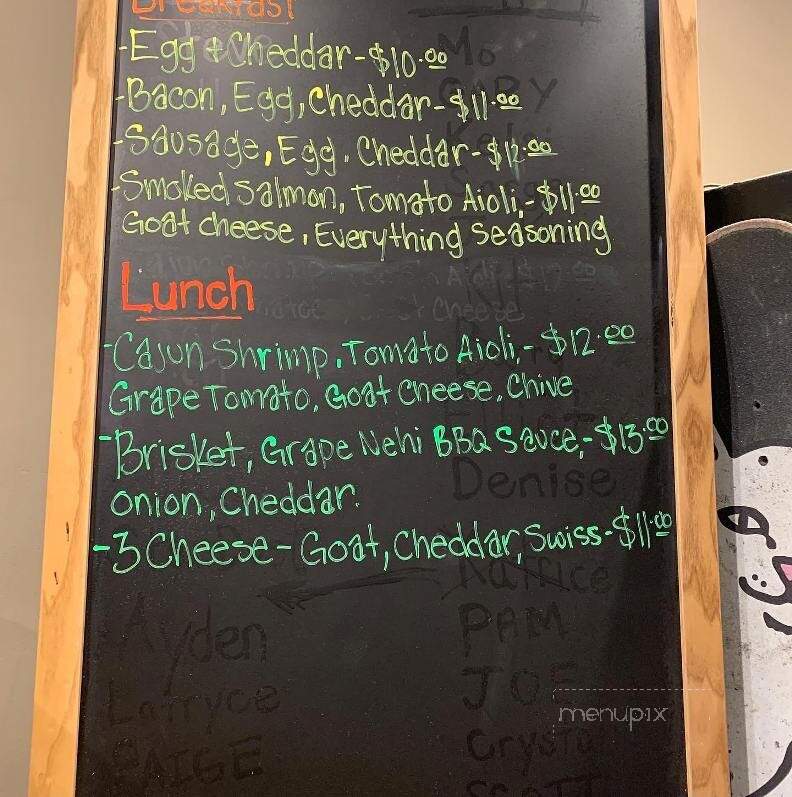 Breakfast
-Egg + Cheddar-$10.00
-Bacon, Egg, Cheddar-$11.00
-Sausage, Egg, Cheddar-$12.00
-Smoked Salmon, Tomato Aioli,-$11.00
Goat cheese, Everything Seasoning
Lunch
-Cajun Shrimp, Tomato Aioli,-$12.00
Grape Tomato, Goat Cheese, Chive
-Brisket, Grape Nehi BBQ Sauce,-$13.00
onion, Cheddar.
-3 Cheese-Goat, Cheddar, Swiss-$11.00
Mo
GARY
Denise
Katrice
Ayden
PAM
Latryce
JOE
PAIGE
Crystal
SCOTT
menupix